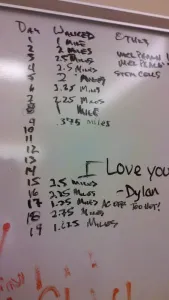 DAY WALKED ETHER
1 1 MILE
2 2 MILES
3 2.5 MILES
4 2.5 MILES STEM CELLS
5 2 MILES
6 2.25 MILES
7 2.25 MILES
8 1 MILE
9 3.75 MILES
10
11
12
13
14 I Love you
15 2.5 MILES -Dylan
16 2.25 MILES
17 1.25 MILES AC OFF TOO HOT!
18 2.75 MILES
19 1.625 MILES